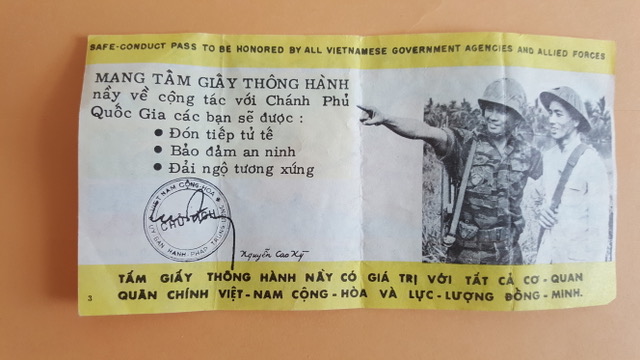 SAFE-CONDUCT PASS TO BE HONORED BY ALL VIETNAMESE GOVERNMENT AGENCIES AND ALLIED FORCES
MANG TẤM GIẤY THÔNG HÀNH
nầy về cộng tác với Chánh Phủ
Quốc Gia các bạn sẽ được :
• Đón tiếp tử tế
• Bảo đảm an ninh
• Đải ngộ tương xứng
VIỆT NAM CỘNG-HÒA
CHỦ-TỊCH
ỦY-BAN HÀNH-PHÁP TRUNG
Nguyễn Cao Kỳ
TẤM GIẤY THÔNG HÀNH NẦY CÓ GIÁ TRỊ VỚI TẤT CẢ CƠ - QUAN
QUÂN CHÍNH VIỆT - NAM CỘNG - HÒA VÀ LỰC - LƯỢNG ĐỒNG - MINH.
3